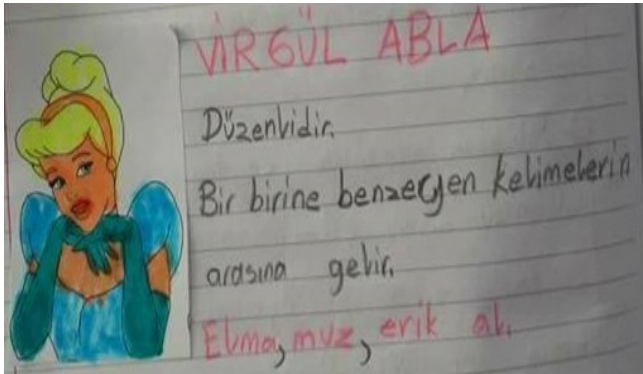 VİRGÜL ABLA
Düzenlidir.
Bir birine benzeyen kelimelerin
arasına gelir.
Elma, muz, erik al.